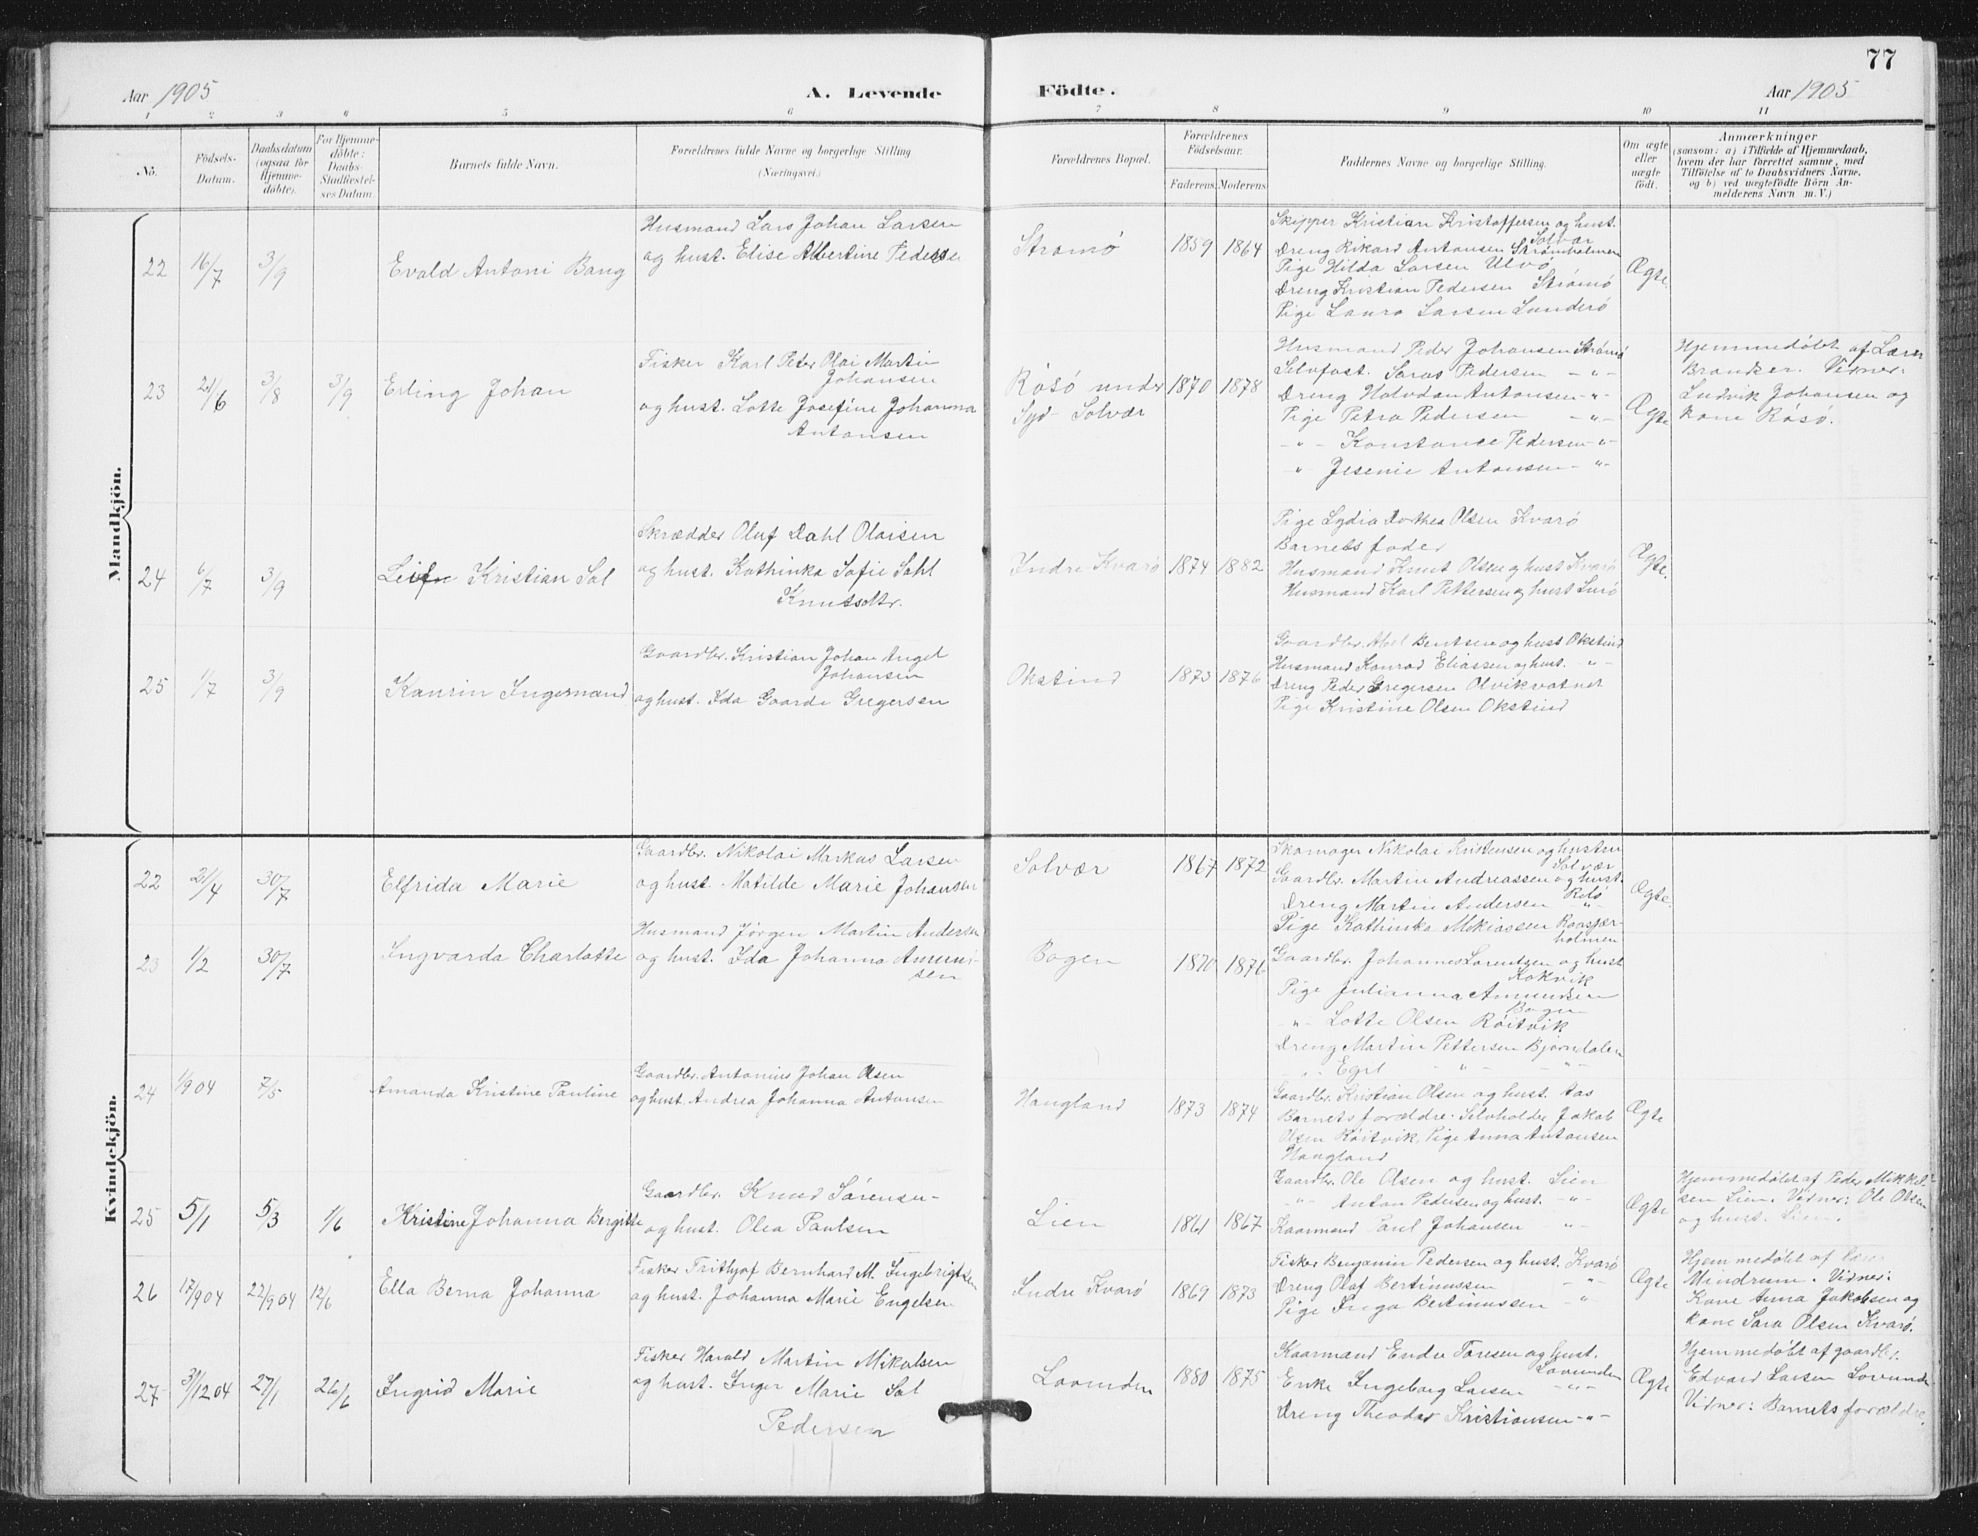 77
Aar 1905
A. Levende
Födte.
Aar 1905
1 2 3 4 5 6 7 8 9 10 11
No.
Födsels-Datum.
Daabsdatum (ogsaa for Hjemme-döbte).
For Hjemme-döbte: Daabs-Stadfæstel-ses Datum.
Barnets fulde Navn.
Forældrenes fulde Navne og borgerlige Stilling
(Næringsvei.)
Forældrenes Bopæl.
Forældrenes Födselsaar.
Faderens. Moderens.
Faddernes Navne og borgerlige Stilling.
Om ægte eller uægte födt.
Anmærkninger
(saasom: a) i Tilfælde af Hjemmedaab, hvem der har forrettet samme, med Tilföielse af to Daabsvidners Navne, og b) ved uægtefödte Börn An-melderens Navn m. V.)
Mandkjön.
22 16/7 3/9 Evald Antoni Bang
Husmand Lars Johan Larsen
og hust. Elise Albertine Pedersen
Stramö 1859 1864
Skipper Kristian Kristoffersen og hust.
Solvær
Dreng Rikard Antonsen Strömholmen
Pige Hilda Larsen Ulvö
Dreng Kristian Pedersen Strömö
Pige Laura Larsen Sunderö
Ægte.
23 21/6 3/8 3/9 Erling Johan
Fisker Karl Peter Olai Martin
Johansen
og hust. Lotte Josefine Johanna
Antonsen
Rösö under
Syd-Solvær
1870 1878
Husmand Peder Johansen Strömö
Selvfost. Saras Pedersen - " -
Dreng Halvdan Antonsen - " -
Pige Petra Pedersen - " -
- " - Konstance Pedersen - " -
- " - Jesenie Antonsen - " -
Ægte
Hjemmedöbt af Lærer
Brandser. Vidner:
Ludvik Johansen og
kone Rösö.
24 6/7 3/9 Leif Kristian Sal
Skrædder Oluf Dahl Olaisen
og hust. Kathinka Sofie Sahl
Knutsdtr.
Indre Kvarö 1874 1882
Pige Lydia Dorthea Olsen Kvarö
Barnets fader
Husmand Knut Olsen og hust Kvarö
Husmand Karl Pettersen og hust Lurö
Ægte.
25 1/7 3/9 Kanrin Ingemand
Gaardbr. Kristian Johan Angel
Johansen
og hust. Ida Gaarde Gregersen
Okstind 1873 1876
Gaardbr. Abel Bentsen og hust Okstind
Husmand Konrad Eliassen og hust. - " -
Dreng Peder Gregersen Olvikvatnet
Pige Kristine Olsen Okstind
Kvindekjön.
22 21/4 30/7 Elfrida Marie
Gaardbr. Nikolai Markus Larsen
og hust. Matilde Marie Johansen
Solvær 1867 1872
Skomager Nikolai Kristensen og hustru
Solvær
Gaardbr. Martin Andreassen og hust.
Dreng Martin Andersen
Pige Kathinka Mikiassen
Ægte.
23 1/2 30/7 Ingvarda Charlotte
Husmand Jörgen Martin Andersen
og hust. Ida Johanna Amund-
sen
Bogen 1870 1876
Gaardbr. Johannes Lorentzen og hust
Kokvik
Pige Julianna Amundsen
Bogen
- " - Lotte Olsen Röitvik
Dreng Martin Pettersen Björndalen
24 1/9 04 7/5 Amanda Kristine Pauline
Gaardbr. Antonius Johan Olsen
og hust. Andrea Johanna Antonsen
Haugland 1873 1874
Gaardbr. Kristian Olsen og hust. Aas
Barnets forældre. Selvholder Jakob
Olsen Röitvik, Pige Anna Antonsen
Haugland
Ægte
25 5/1 5/3 1/6 Kristine Johanna Bergitte
Gaardbr. Knud Sörensen
og hust. Olea Paulsen
Lien 1861 1867
Gaardbr. Ole Olsen og hust. Lien
- " - Anton Pedersen og hust. - " -
Kaarmand Paul Johansen - " -
Ægte
Hjemmedöbt af Peder Mikkel-
sen Lien. Vidner: Ole Olsen
og hust. Lien.
26 17/9 04 22/9 04 12/6 Ella Berna Johanna
Fisker Frithjof Bernhard M. Ingebrigtsen
og hust. Johanna Marie Engelsen
Indre Kvarö 1869 1873
Fisker Benjamin Pedersen og hust. Kvarö
Dreng Olaf Bertinussen - " -
Pige Inga Bertinussen - " -
Ægte
Hjemmedöbt af
Mindrum. Vidner:
Kone Anna Jakobsen og
kone Sara Olsen Kvarö.
27 31/12 04 27/1 26/6 Ingrid Marie
Fisker Harald Martin Mikalsen
og hust. Inger Marie Sal
Pedersen
Lovunden 1880 1875
Kaarmand Endre Toresen og hust.
Lovunden
Enke Ingeborg Larsen - " -
Dreng Theodor Kristiansen - " -
Ægte
Hjemmedöbt af gaardbr.
Edvard Larsen Lovunde
Vidner: Barnets forældre.